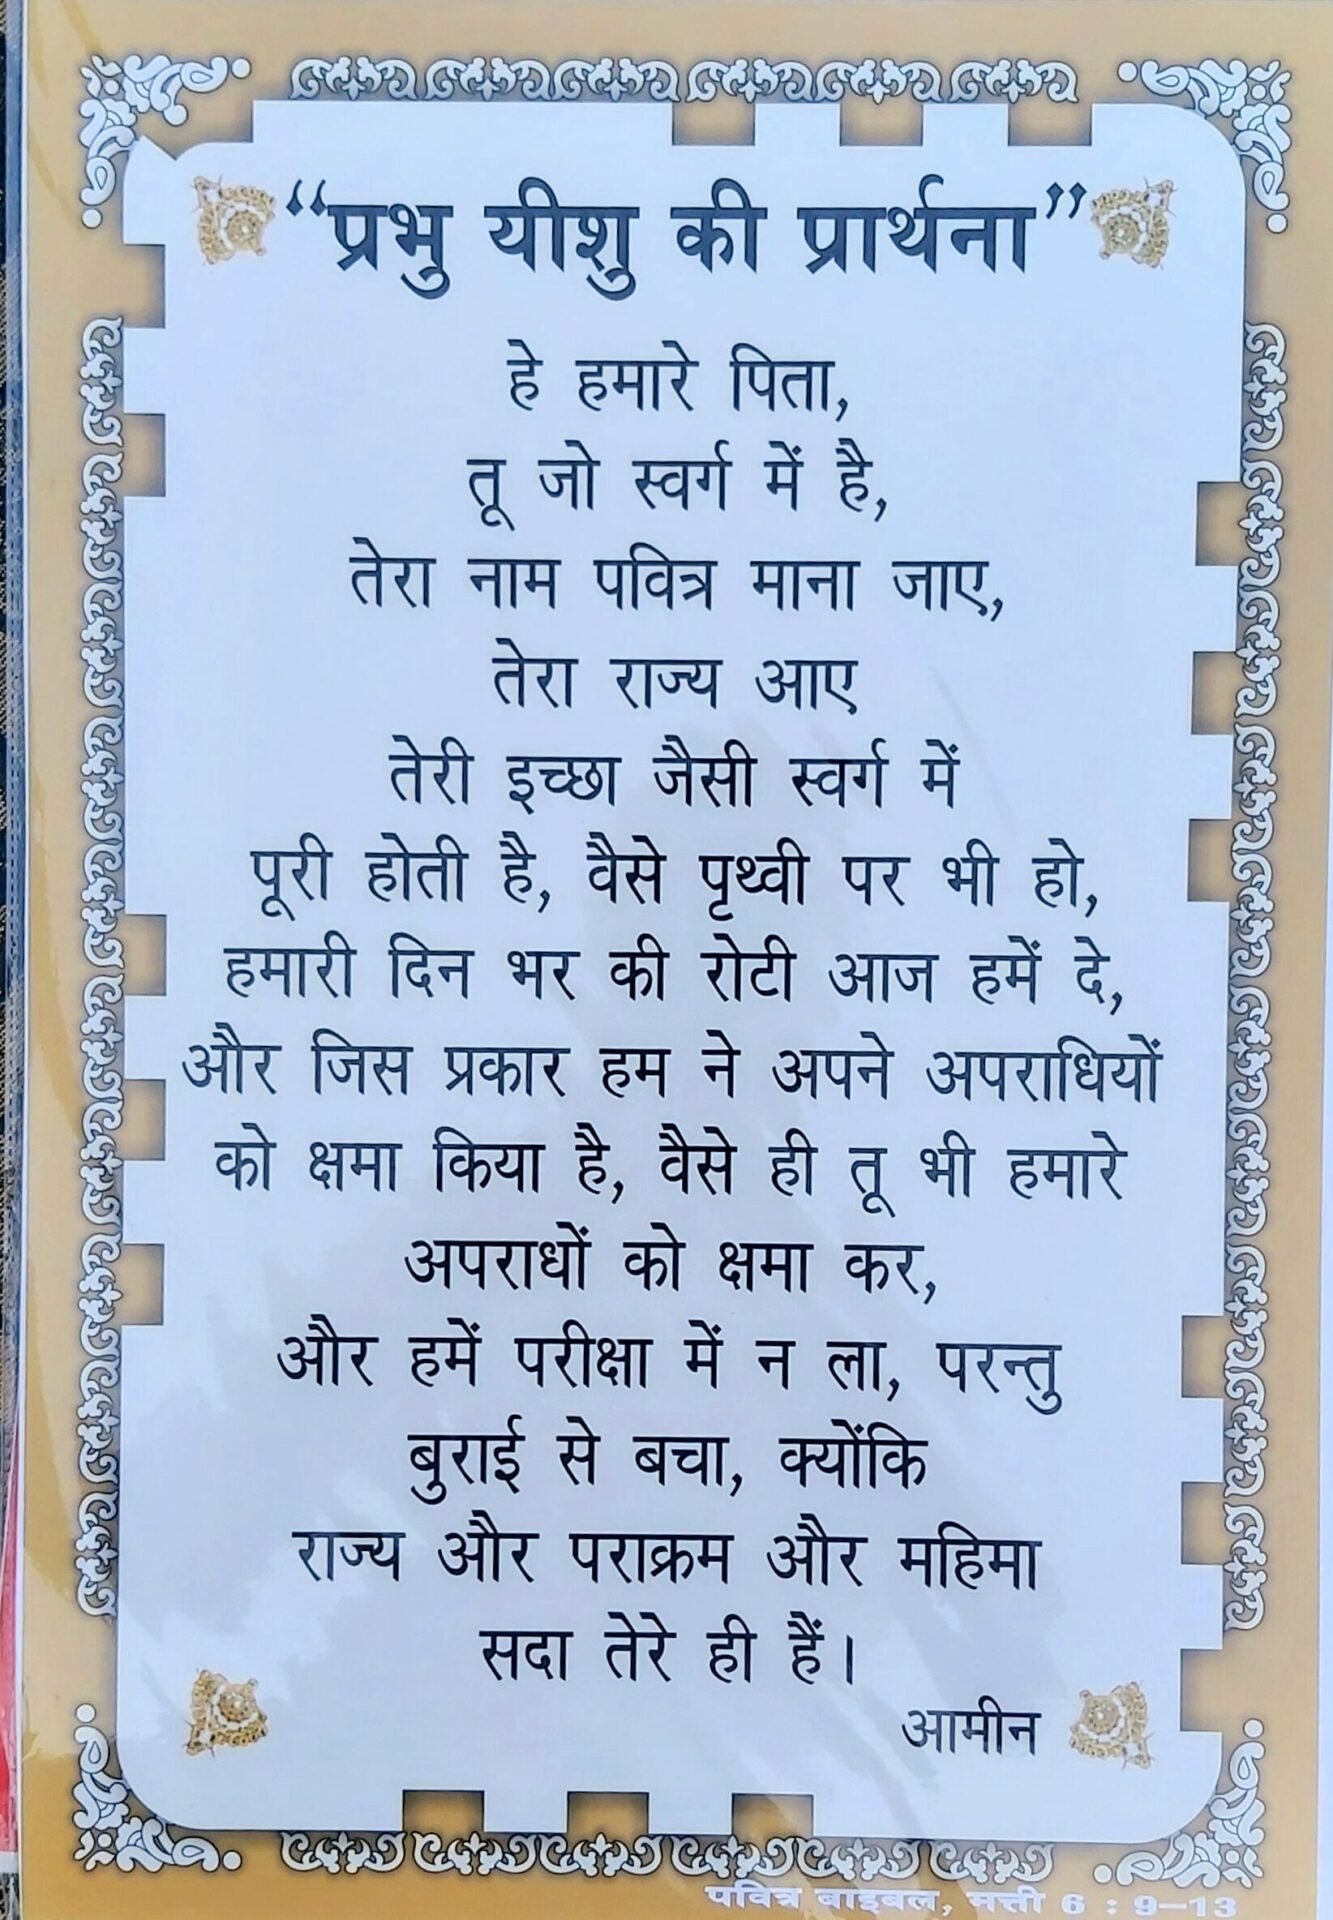 “प्रभु यीशु की प्रार्थना”
हे हमारे पिता,
तू जो स्वर्ग में है,
तेरा नाम पवित्र माना जाए,
तेरा राज्य आए
तेरी इच्छा जैसी स्वर्ग में
पूरी होती है, वैसे पृथ्वी पर भी हो,
हमारी दिन भर की रोटी आज हमें दे,
और जिस प्रकार हम ने अपने अपराधियों
को क्षमा किया है, वैसे ही तू भी हमारे
अपराधों को क्षमा कर,
और हमें परीक्षा में न ला, परन्तु
बुराई से बचा, क्योंकि
राज्य और पराक्रम और महिमा
सदा तेरे ही हैं।
आमीन
पवित्र बाइबल, मत्ती 6 : 9–13